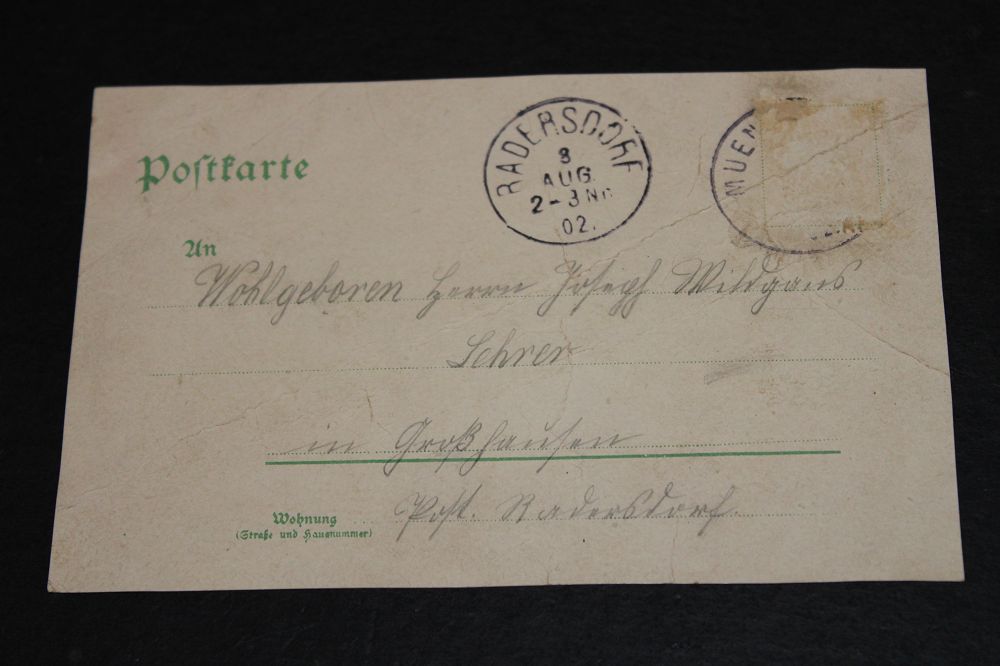 Postkarte
RADERSDORF
8
AUG.
2-3 Nm
02.
MUEN
An
Wohlgeboren Herrn Joseph Wildgans
Lehrer
in Großhausen
Wohnung
(Straße und Hausnummer)
Post. Radersdorf.